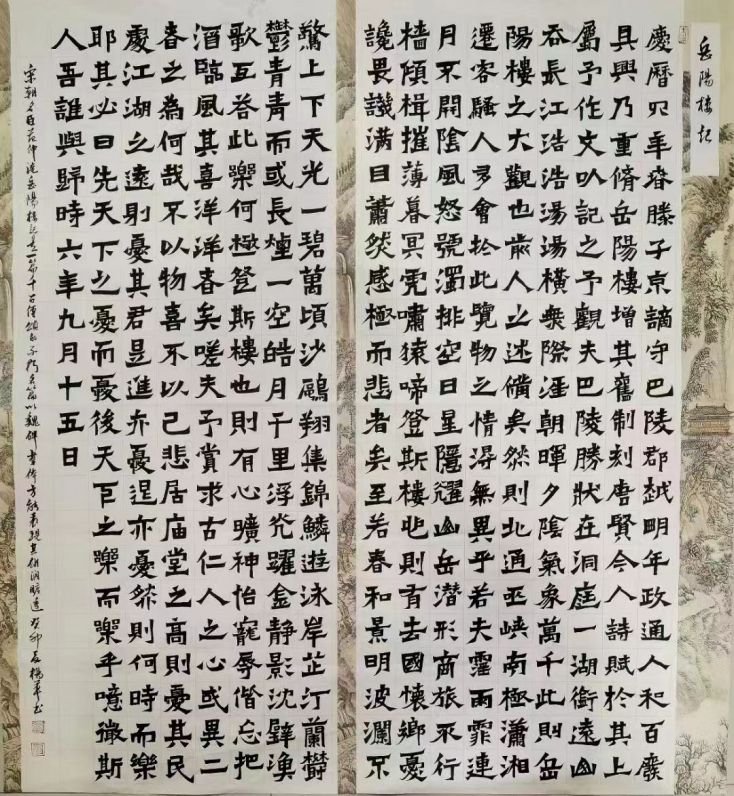 岳陽樓記
慶曆四年春滕子京謫守巴陵郡越明年政通人和百廢
具興乃重脩岳陽樓增其舊制刻唐賢今人詩賦於其上
屬予作文以記之予觀夫巴陵勝狀在洞庭一湖銜遠山
吞長江浩浩湯湯橫無際涯朝暉夕陰氣象萬千此則岳
陽樓之大觀也前人之述備矣然則北通巫峽南極瀟湘
遷客騷人多會於此覽物之情得無異乎若夫霪雨霏連
月不開陰風怒號濁排空日星隱耀山岳潛形商旅不行
檣傾楫摧薄暮冥虎嘯猿啼登斯樓也則有去國懷鄉憂
讒畏譏滿目蕭然感極而悲者矣至若春和景明波瀾不
驚上下天光一碧萬頃沙鷗翔集錦鱗遊泳岸芷汀蘭鬱
鬱青青而或長煙一空皓月千里浮光躍金靜影沈璧漁
歌互答此樂何極登斯樓也則有心曠神怡寵辱偕忘把
酒臨風其喜洋洋者矣嗟夫予嘗求古仁人之心或異二
者之為何哉不以物喜不以己悲居庙堂之高則憂其民
處江湖之遠則憂其君是進亦憂退亦憂然則何時而樂
耶其必曰先天下之憂而憂後天下之樂而樂乎噫微斯
人吾誰與歸時六年九月十五日
宋朝名臣范仲淹岳陽樓記是一篇千古傳頌之不朽名篇以魏碑書体方能表現其雄渾曠達癸卯夏楊華書